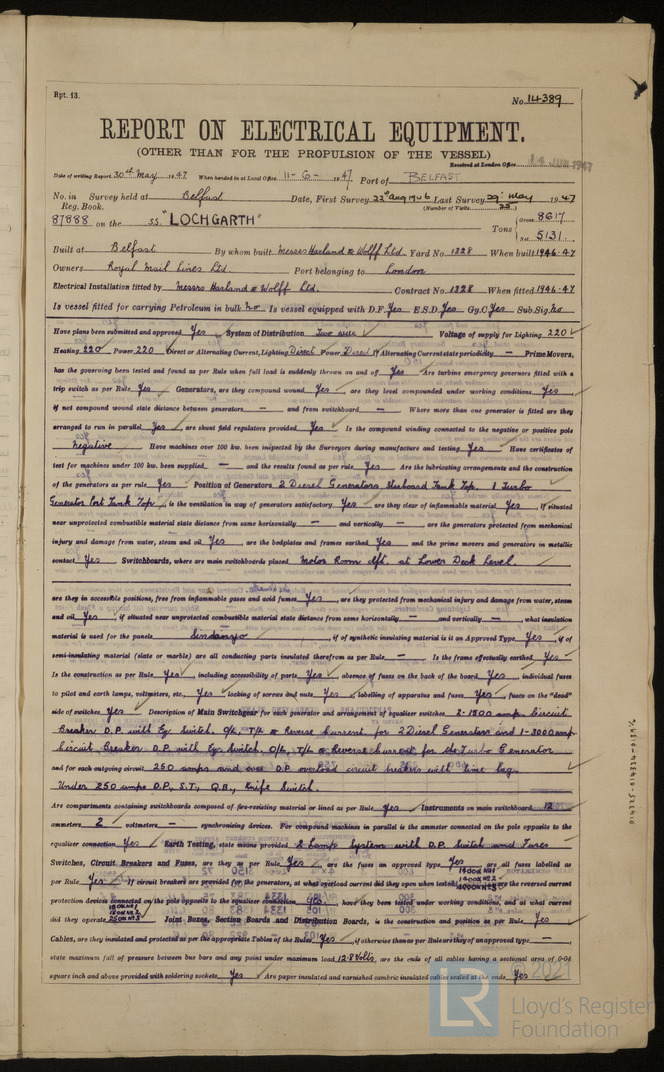 Rpt. 13.
No. 14389
REPORT ON ELECTRICAL EQUIPMENT.
(OTHER THAN FOR THE PROPULSION OF THE VESSEL)
Received at London Office 14 JUN 1947
Date of writing Report 30th May 1947 When handed in at Local Office 11-6-1947 Port of BELFAST
No. in Survey held at Belfast Date, First Survey 22nd Aug 1946 Last Survey 29th May 1947
Reg. Book. (Number of Visits 25)
87888 on the SS "LOCHGARTH" Tons { Gross 8617
Net 5131
Built at Belfast By whom built Messrs Harland & Wolff Ltd. Yard No. 1328 When built 1946-47
Owners Royal Mail Lines Ltd. Port belonging to London
Electrical Installation fitted by Messrs Harland & Wolff Ltd. Contract No. 1328 When fitted 1946-47
Is vessel fitted for carrying Petroleum in bulk No Is vessel equipped with D.F. Yes E.S.D. Yes Gy.C. Yes Sub.Sig. No
Have plans been submitted and approved Yes System of Distribution Two wire Voltage of supply for Lighting 220
Heating 220 Power 220 Direct or Alternating Current, Lighting Direct Power Direct If Alternating Current state periodicity — Prime Movers,
has the governing been tested and found as per Rule when full load is suddenly thrown on and off Yes Are turbine emergency governors fitted with a
trip switch as per Rule Yes Generators, are they compound wound Yes, are they level compounded under working conditions Yes,
if not compound wound state distance between generators — and from switchboard — Where more than one generator is fitted are they
arranged to run in parallel Yes, are shunt field regulators provided Yes Is the compound winding connected to the negative or positive pole
Negative Have machines over 100 kw. been inspected by the Surveyors during manufacture and testing Yes Have certificates of
test for machines under 100 kw. been supplied — and the results found as per rule Yes Are the lubricating arrangements and the construction
of the generators as per rule Yes Position of Generators 2 Diesel Generators Starboard Tank Top. 1 Turbo
Generator Port Tank Top, is the ventilation in way of generators satisfactory Yes are they clear of inflammable material Yes, if situated
near unprotected combustible material state distance from same horizontally — and vertically — are the generators protected from mechanical
injury and damage from water, steam and oil Yes, are the bedplates and frames earthed Yes and the prime movers and generators in metallic
contact Yes Switchboards, where are main switchboards placed Motor Room Aft. at Lower Deck Level.
are they in accessible positions, free from inflammable gases and acid fumes Yes, are they protected from mechanical injury and damage from water, steam
and oil Yes, if situated near unprotected combustible material state distance from same horizontally — and vertically —, what insulation
material is used for the panels Sindanyo if of synthetic insulating material is it an Approved Type Yes, if of
semi-insulating material (slate or marble) are all conducting parts insulated therefrom as per Rule — Is the frame effectually earthed Yes
Is the construction as per Rule Yes, including accessibility of parts Yes, absence of fuses on the back of the board Yes, individual fuses
to pilot and earth lamps, voltmeters, etc., Yes locking of screws and nuts Yes, labelling of apparatus and fuses Yes, fuses on the "dead"
side of switches Yes Description of Main Switchgear for each generator and arrangement of equaliser switches 2-1500 amp. Circuit
Breaker D.P. with Eq. Switch. O/L, T/L & Reverse Current. for 2 Diesel Generators and 1-3000 amp
Circuit Breaker D.P. with Eq. Switch, O/L, T/L & Reverse Current for the Turbo Generator
and for each outgoing circuit 250 amps and over D.P. overload circuit breakers with time lag.
Under 250 amps D.P., S.T., Q.B., Knife Switch.
Are compartments containing switchboards composed of fire-resisting material or lined as per Rule Yes Instruments on main switchboard 12
ammeters 2 voltmeters — synchronising devices. For compound machines in parallel is the ammeter connected to the pole opposite to the
equaliser connection Yes Earth Testing, state means provided 2 Lamp System with D.P. Switch and Fuses
Switches, Circuit Breakers and Fuses, are they as per Rule Yes, are the fuses an approved type Yes, are all fuses labelled as
per Rule Yes If circuit breakers are provided for the generators, at what overload current did they open when tested, are the reversed current
protection devices connected on the pole opposite to the equaliser connection Yes, have they been tested under working conditions, and at what current
did they operate Joint Boxes, Section Boards and Distribution Boards, is the construction and position as per Rule Yes
Cables, are they insulated and protected as per the appropriate Tables of the Rules Yes, if otherwise than as per Rule are they of an approved type —,
state maximum fall of pressure between bus bars and any point under maximum load 12.8 Volts, are the ends of all cables having a sectional area of 0·04
square inch and above provided with soldering sockets Yes Are paper insulated and varnished cambric insulated cables sealed at the ends Yes
© 2021
LR
Lloyd's Register
Foundation